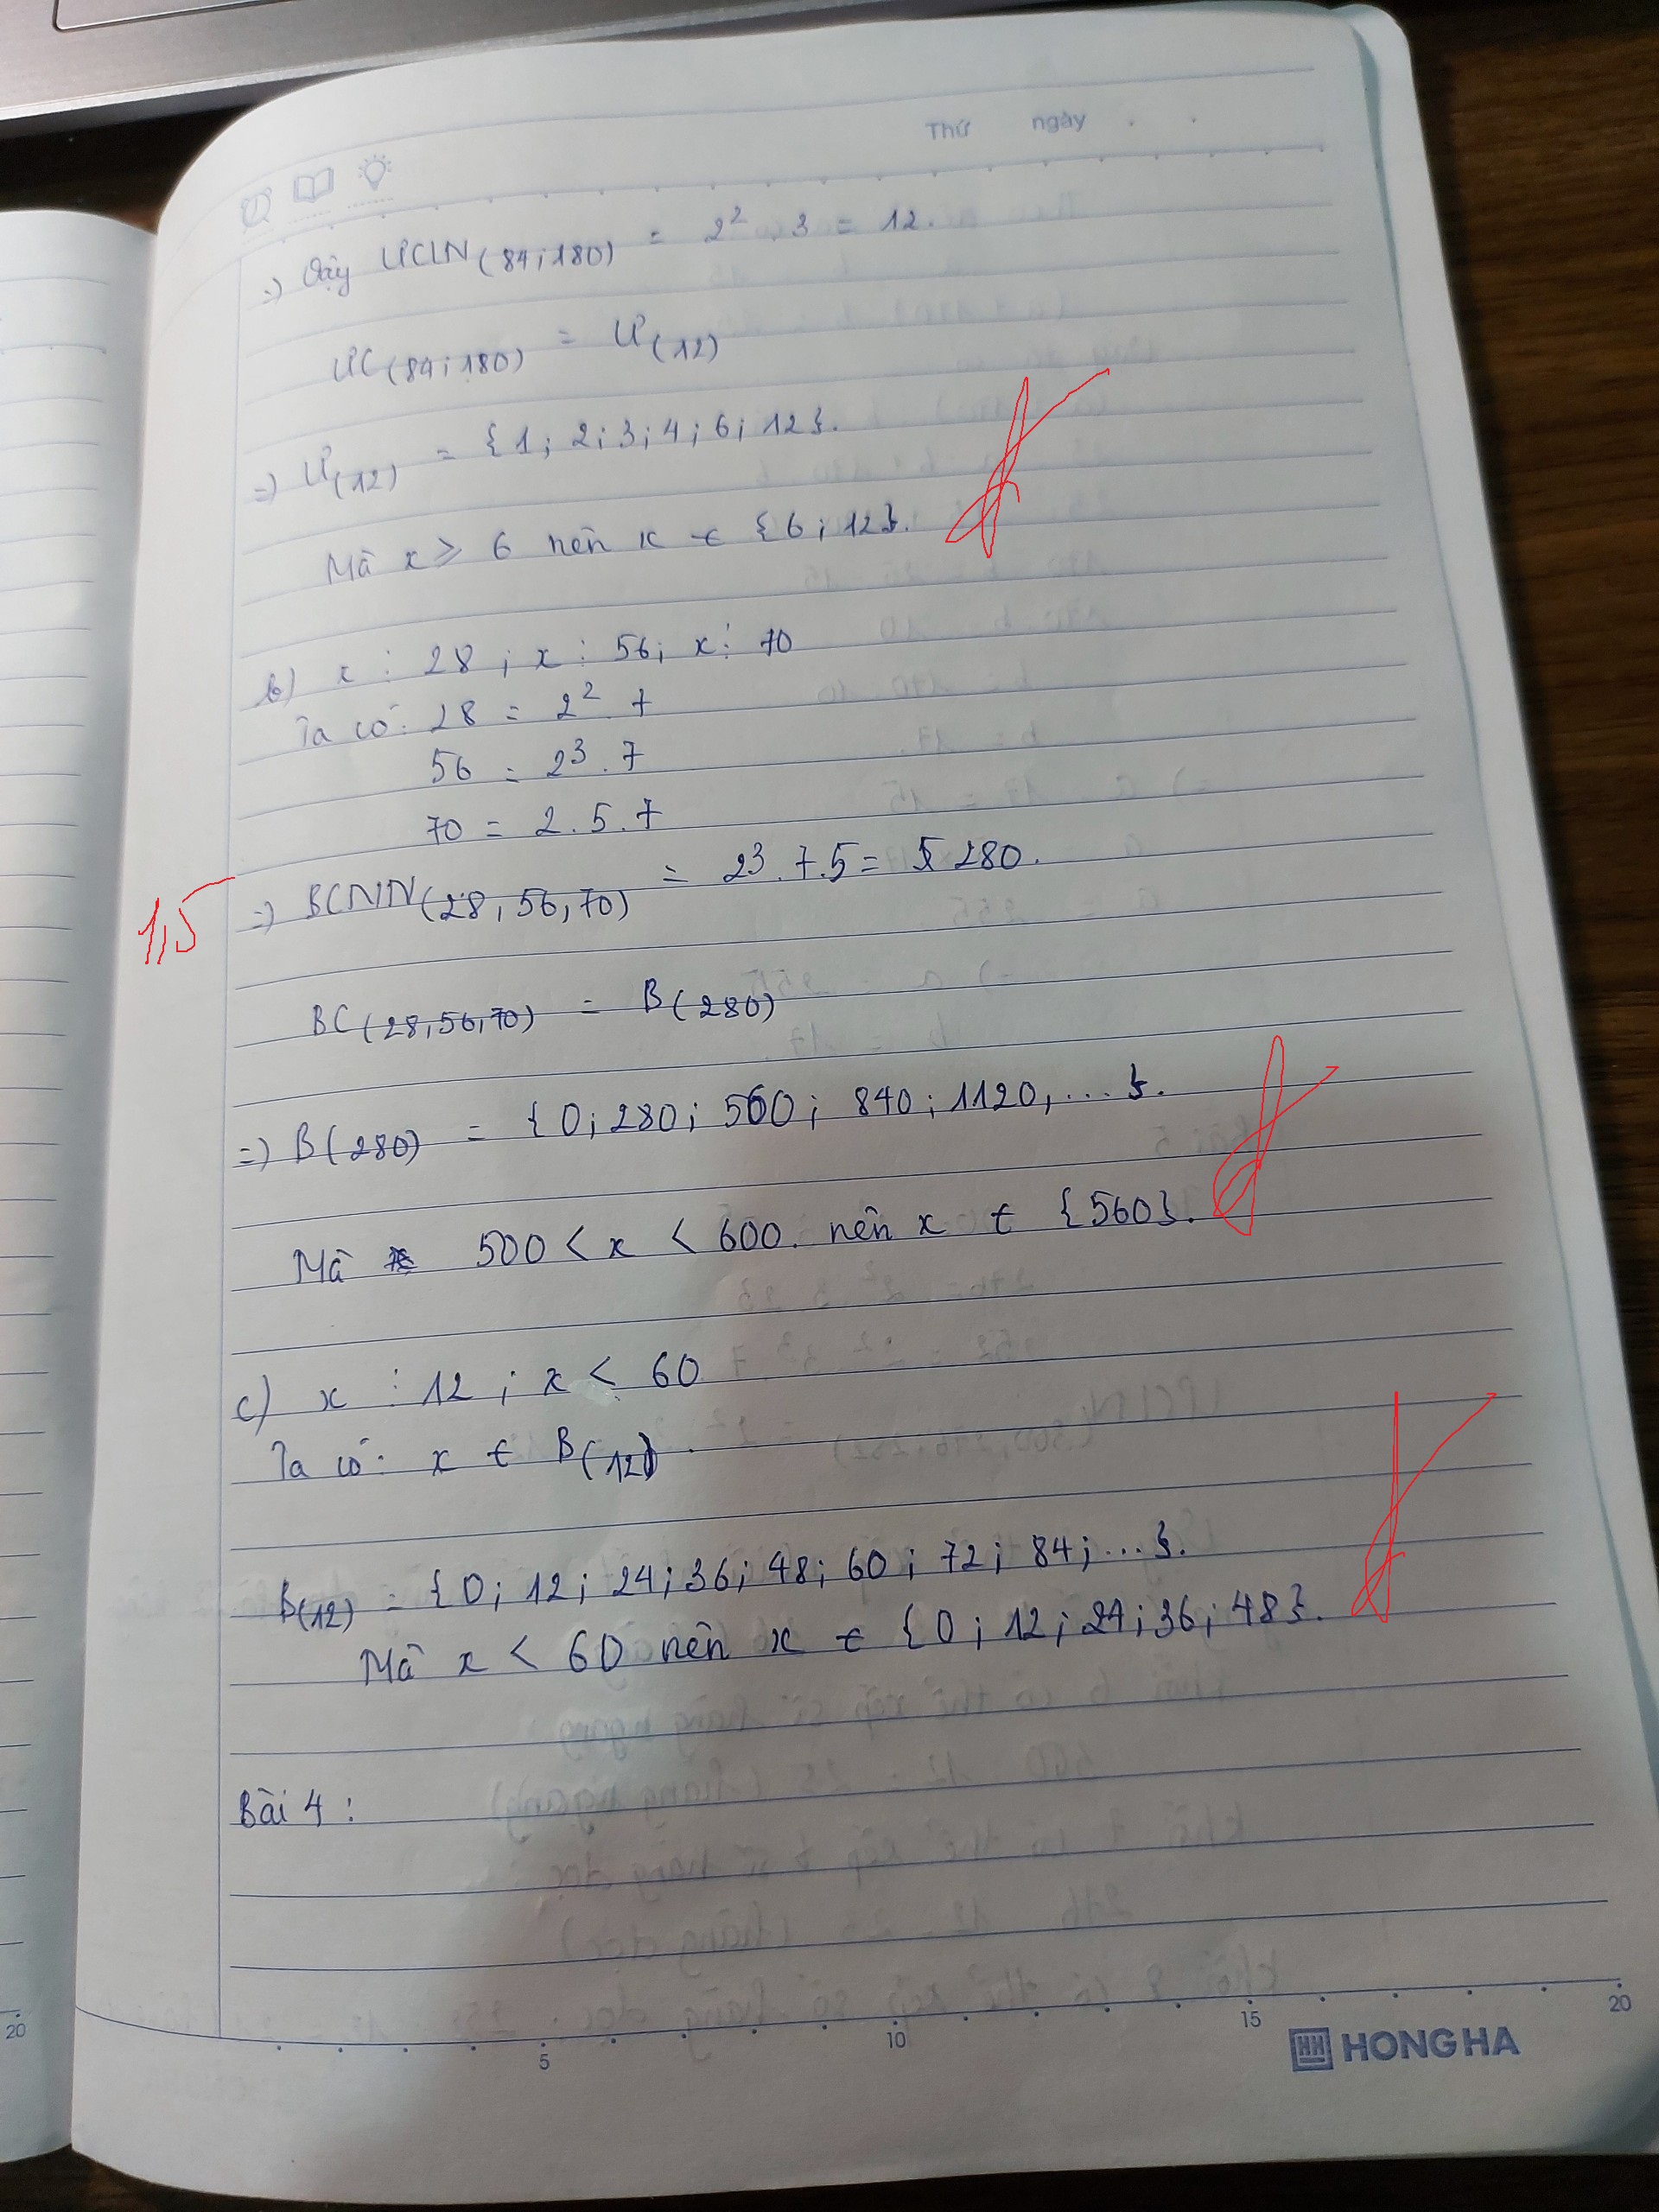 Thứ ngày
=) Vậy ƯCLN(84;180) = 2² . 3 = 12.
ƯC(84;180) = Ư(12)
=) Ư(12) = {1; 2; 3; 4; 6; 12}.
Mà x ≥ 6 nên x ∈ {6; 12}.
b) x ⋮ 28 ; x ⋮ 56; x ⋮ 70
Ta có: 28 = 2² . 7
56 = 2³ . 7
70 = 2 . 5 . 7
1,5
=) BCNN(28, 56, 70) = 2³ . 7 . 5 = 280.
BC(28,56,70) = B(280)
=) B(280) = {0; 280; 560; 840; 1120, ... }.
Mà 500 < x < 600. nên x ∈ {560}.
c) x ⋮ 12 ; x < 60
Ta có: x ∈ B(12).
B(12) = {0; 12; 24; 36; 48; 60; 72; 84; ... }.
Mà x < 60 nên x ∈ {0; 12; 24; 36; 48}.
Bài 4 :
20 5 10 15 20
HH HONG HA